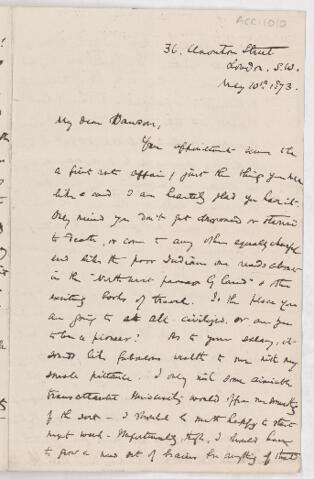 ACC:1010
36. Street
London. S.W.
May 10th 1873.
My dear Dawson,
Your appointment seems to be
a first rate affair, just the thing you
like and I am heartily glad you have it.
Only mind you don't get drowned or starved
to death, or come to any other equally
end like the poor Indians one reads about
in the "North west passage by land" & other
exciting books of travel. Is the place you
are going to at all civilized, or are you
to be a pioneer? As to your salary, it
sounds like fabulous wealth to me with my
small pittance. I only wish some amiable
transatlantic University would offer me something
of the sort - I should be most happy to start
next week - Unfortunately tho', I should have
to grow a new set of brains for anything of that